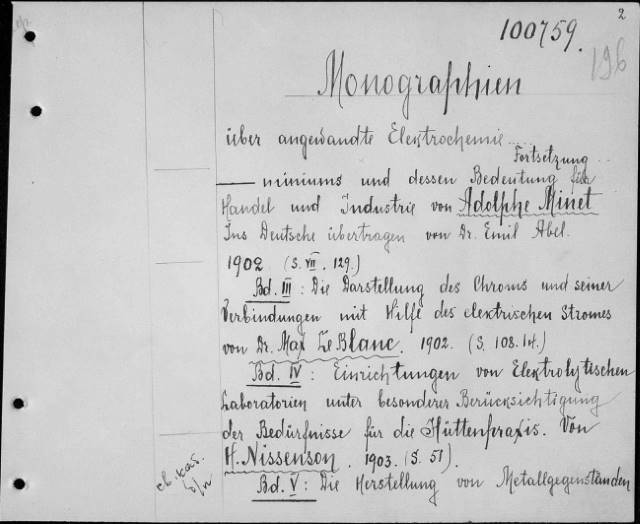 2
100759.
196
Monographien
über angewandte Elektrochemie....
Fortsetzung...
— miniums und dessen Bedeutung für
Handel und Industrie von Adolphe Minet
Ins Deutsche übertragen von Dr. Emil Abel.
1902 (S. VII, 129.)
Bd. III: Die Darstellung des Chroms und seiner
Verbindungen mit Hilfe des elektrischen Stromes
von Dr. Max Le Blanc. 1902. (S. 108.14.)
Bd. IV: Einrichtungen von Elektrolytischen
Laboratorien unter besonderer Berücksichtigung
der Bedürfnisse für die Hüttenpraxis. Von
H. Nissenson. 1903. (S. 51).
Bd. V: Die Herstellung von Metallgegenständen